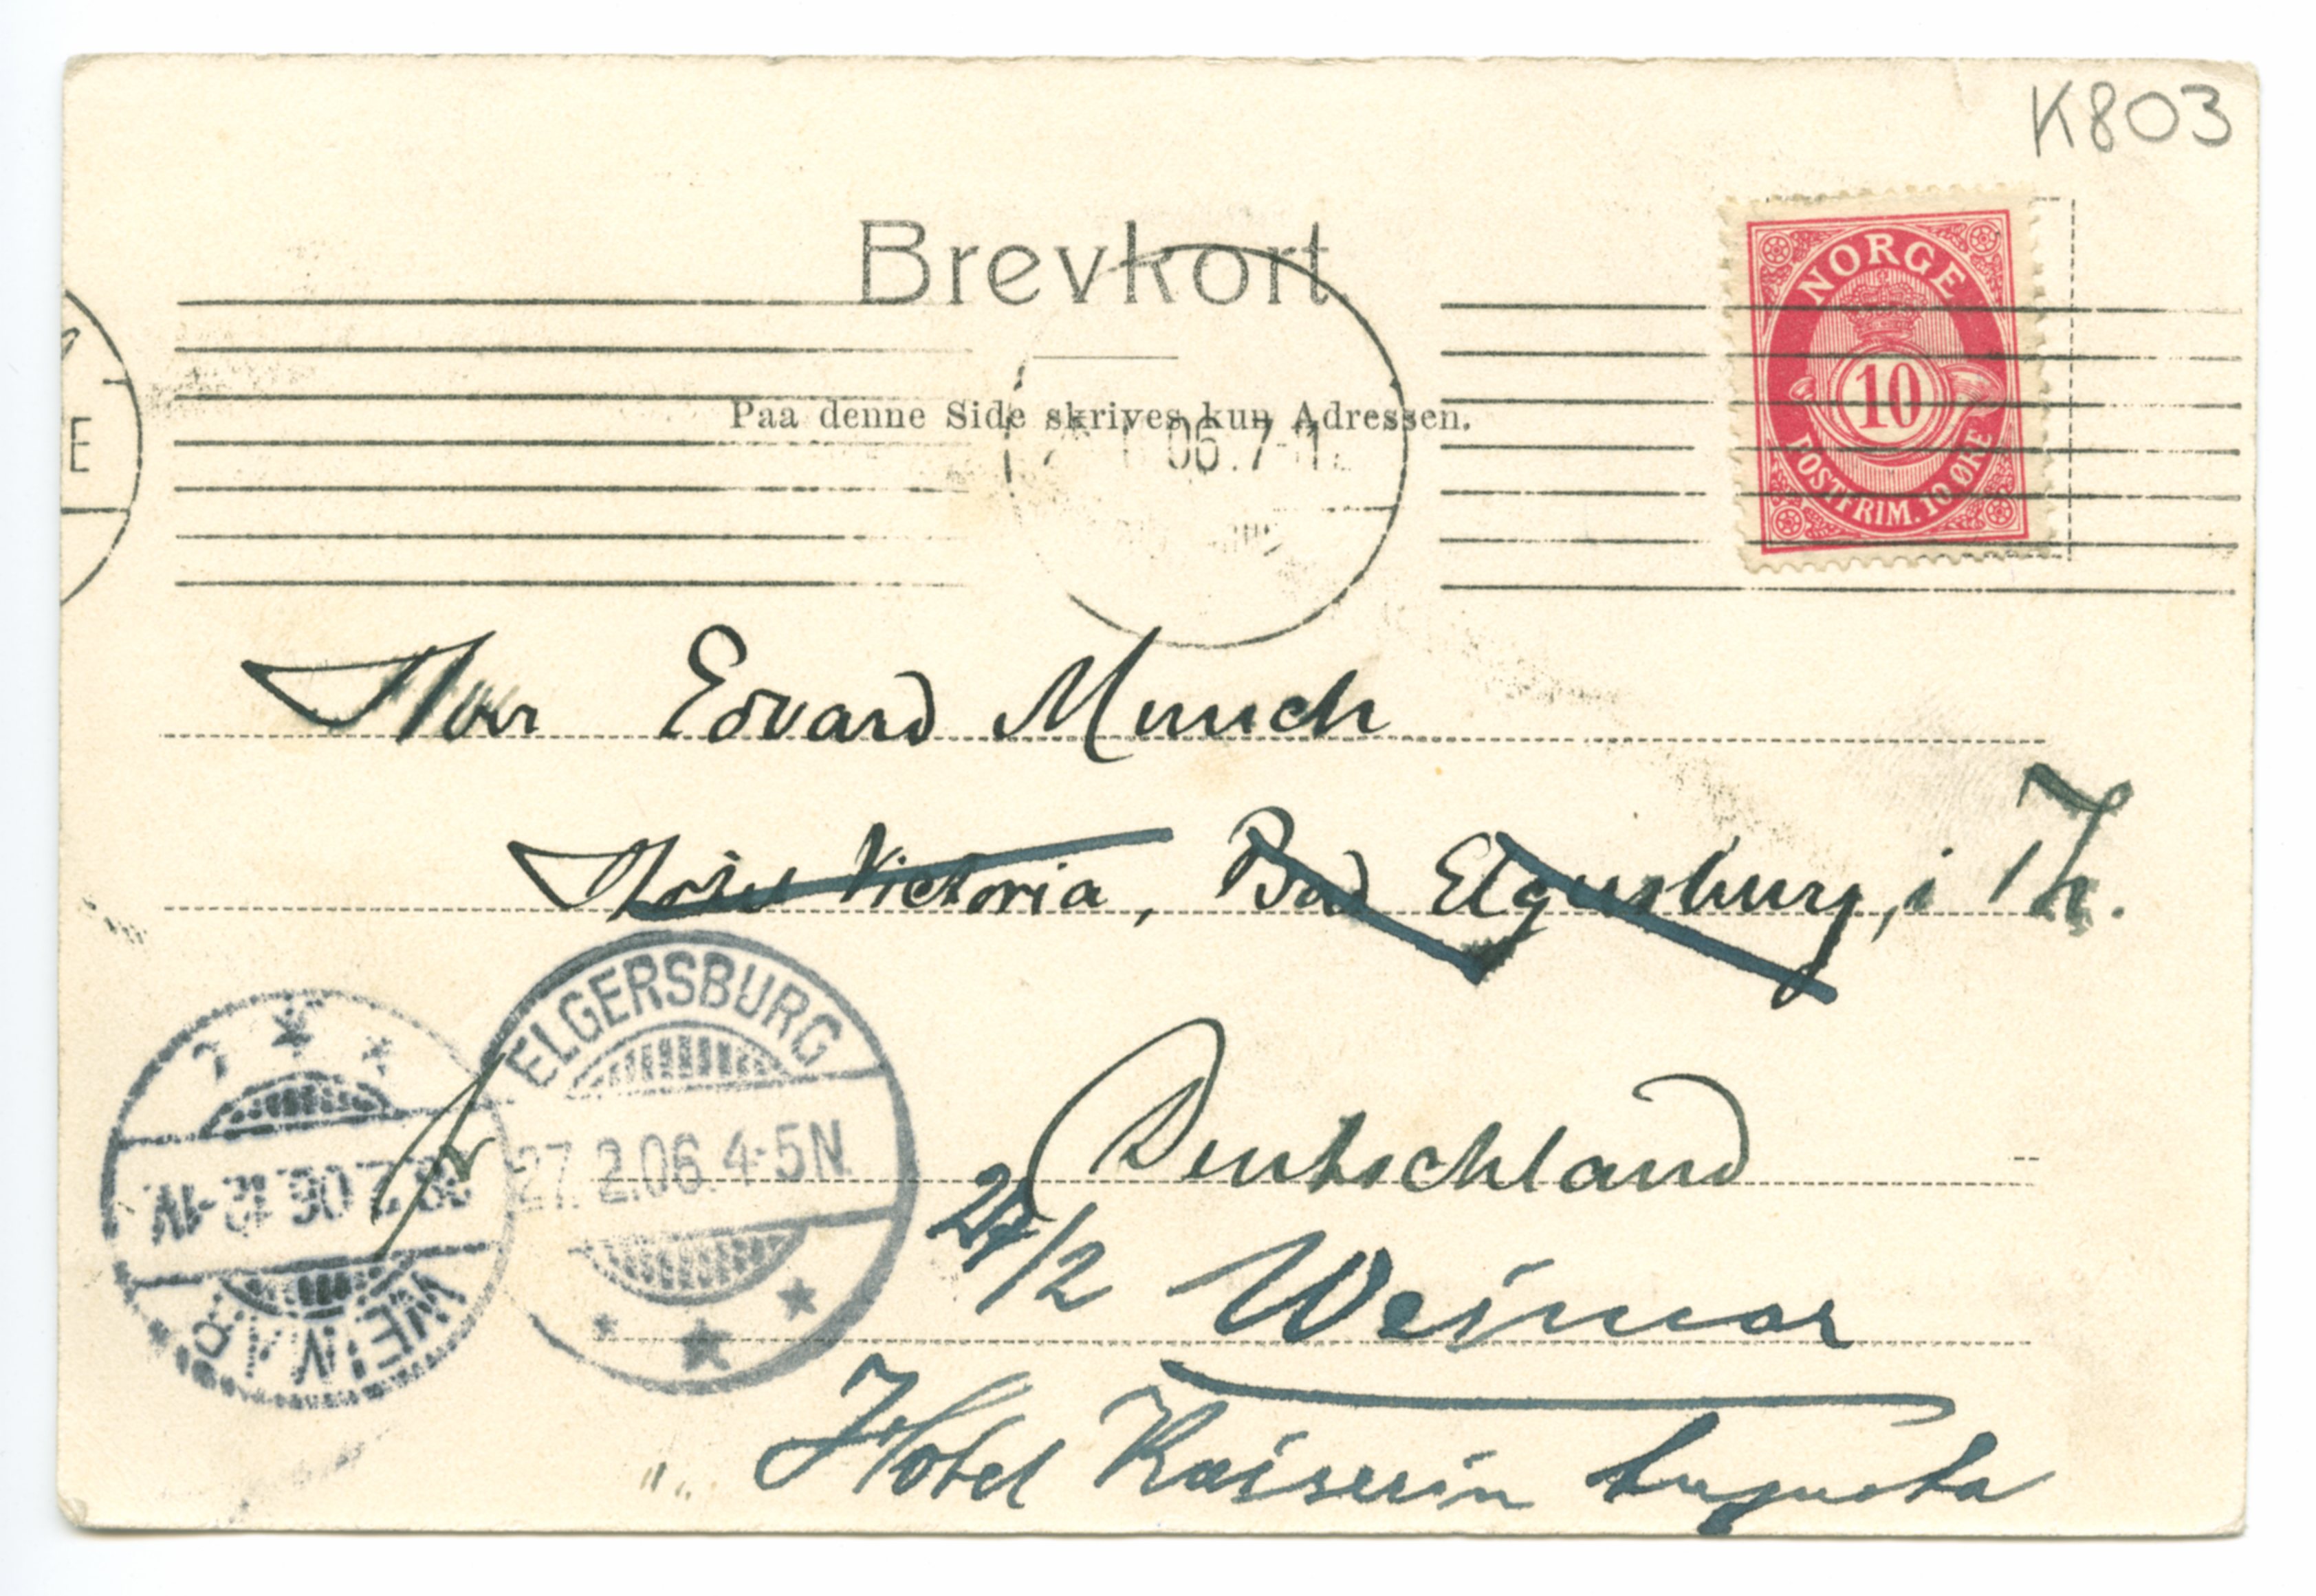 K803
Brevkort
NORGE
10
POSTFRIM. 10 ØRE
Paa denne Side skrives kun Adressen.
E
06.7-11
Herr Edvard Munch
Hotel Victoria, Bad Elgersburg, i Th.
ELGERSBURG
27.2.06. 4-5N.
Deutschland
28.2.06. 12-1N.
WEIMAR
27/2 Weimar
Hotel Kaiserin Augusta